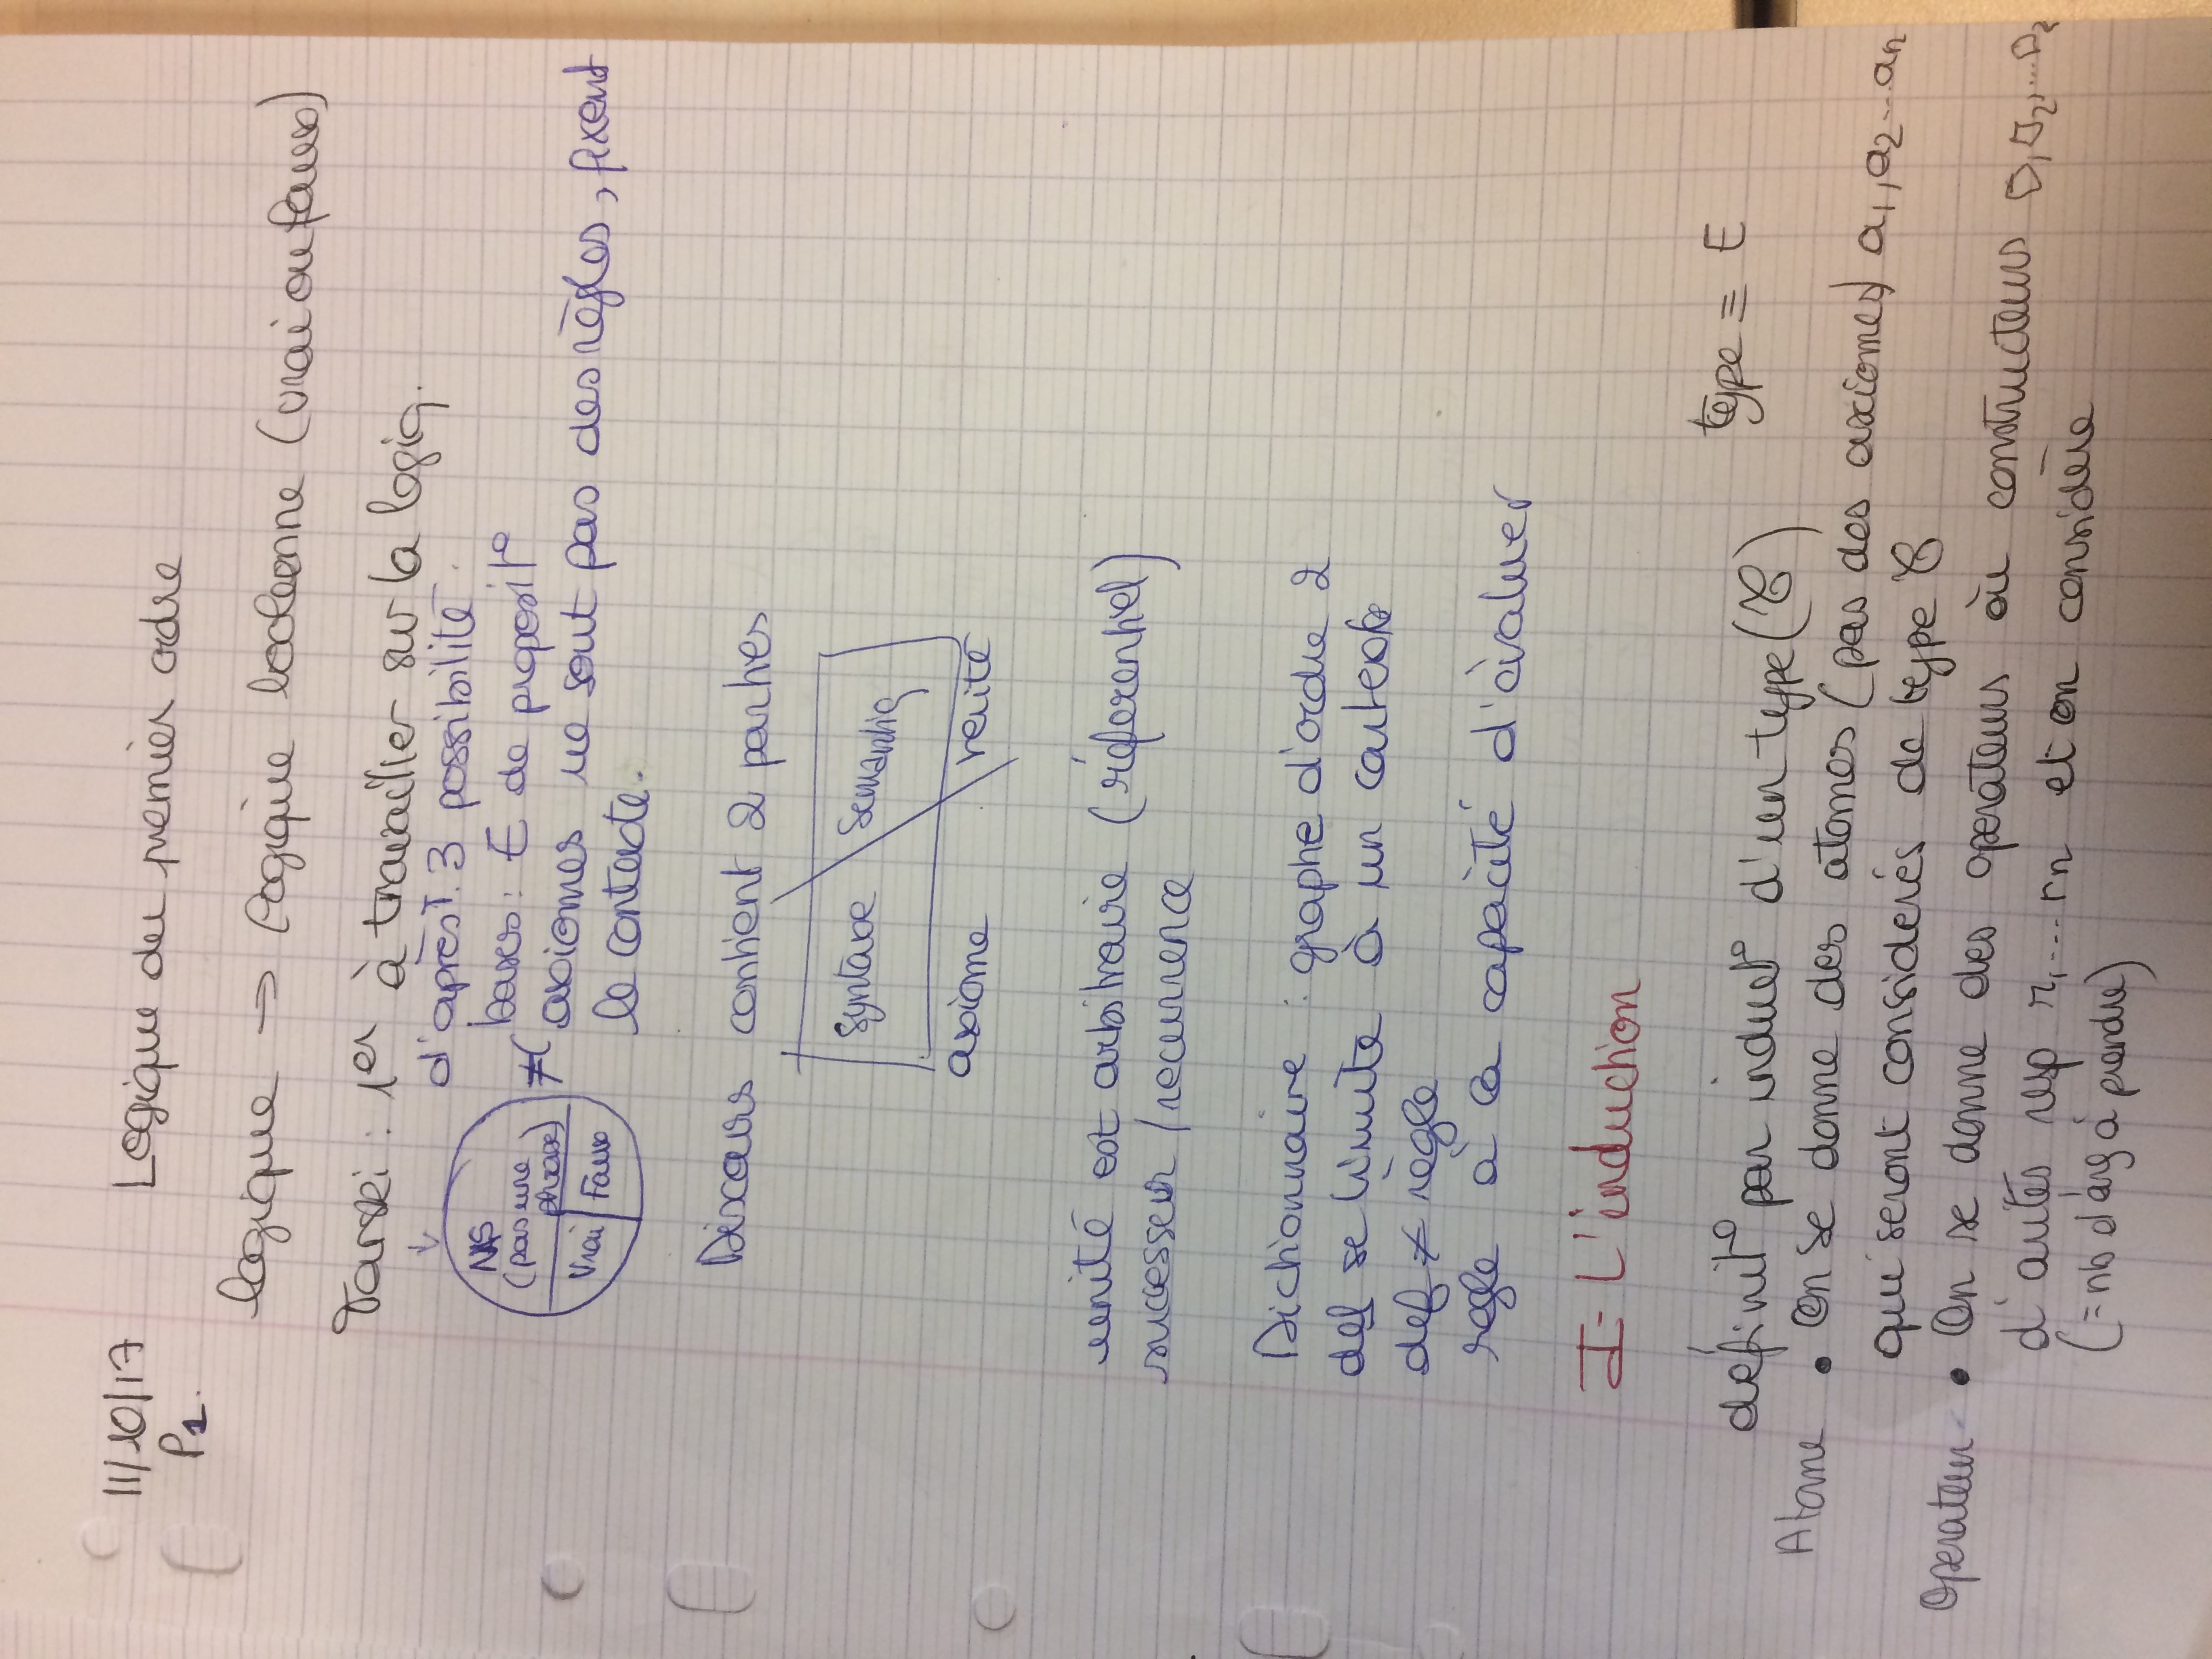 11/10/17
P1.
Logique du premier ordre
logique → logique booleenne (vrai ou faux)
Tarski : 1er à travailler sur la logiq.
d'après T. 3 possibilité
NAS
(pas une
phrase)
Vrai Faux
≠( bases : E de proposit°
axiomes ne sont pas des règles, fixent
le contexte.
Discours contient 2 parties
syntaxe semantiq
axiome verité
unité est arbitraire (réferentiel)
successeur / recurrence
Dictionnaire : graphe d'ordre 2
def se limite à un contexte
def ≠ règle
regle à la capacité d'évaluer
I- L'induction
définit° par induct° d'un type (𝒞)
type ≡ E
Atome • On se donne des atomes (pas des axiomes) a1, a2 ... an
qui seront considerés de type 𝒞
Operateur • On se donne des operateurs où constructeurs
d'arités resp r1, ... rn et on considère
(= nb d'arg à prendre)